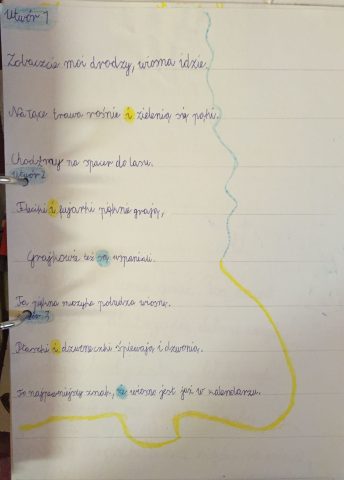 Utwór 1
Zobaczcie moi drodzy, wiosna idzie.
Na łące trawa rośnie i zielenią się pąki.
Chodźmy na spacer do lasu.
Utwór 2
i fujarki pięknie grają,
Grajkowie też są wspaniali.
Ta piękna muzyka pobudza wiosnę.
3
Ptaszki i dzwoneczki śpiewają i dzwonią.
To najpewniejszy znak, że wiosna jest już w kalendarzu.